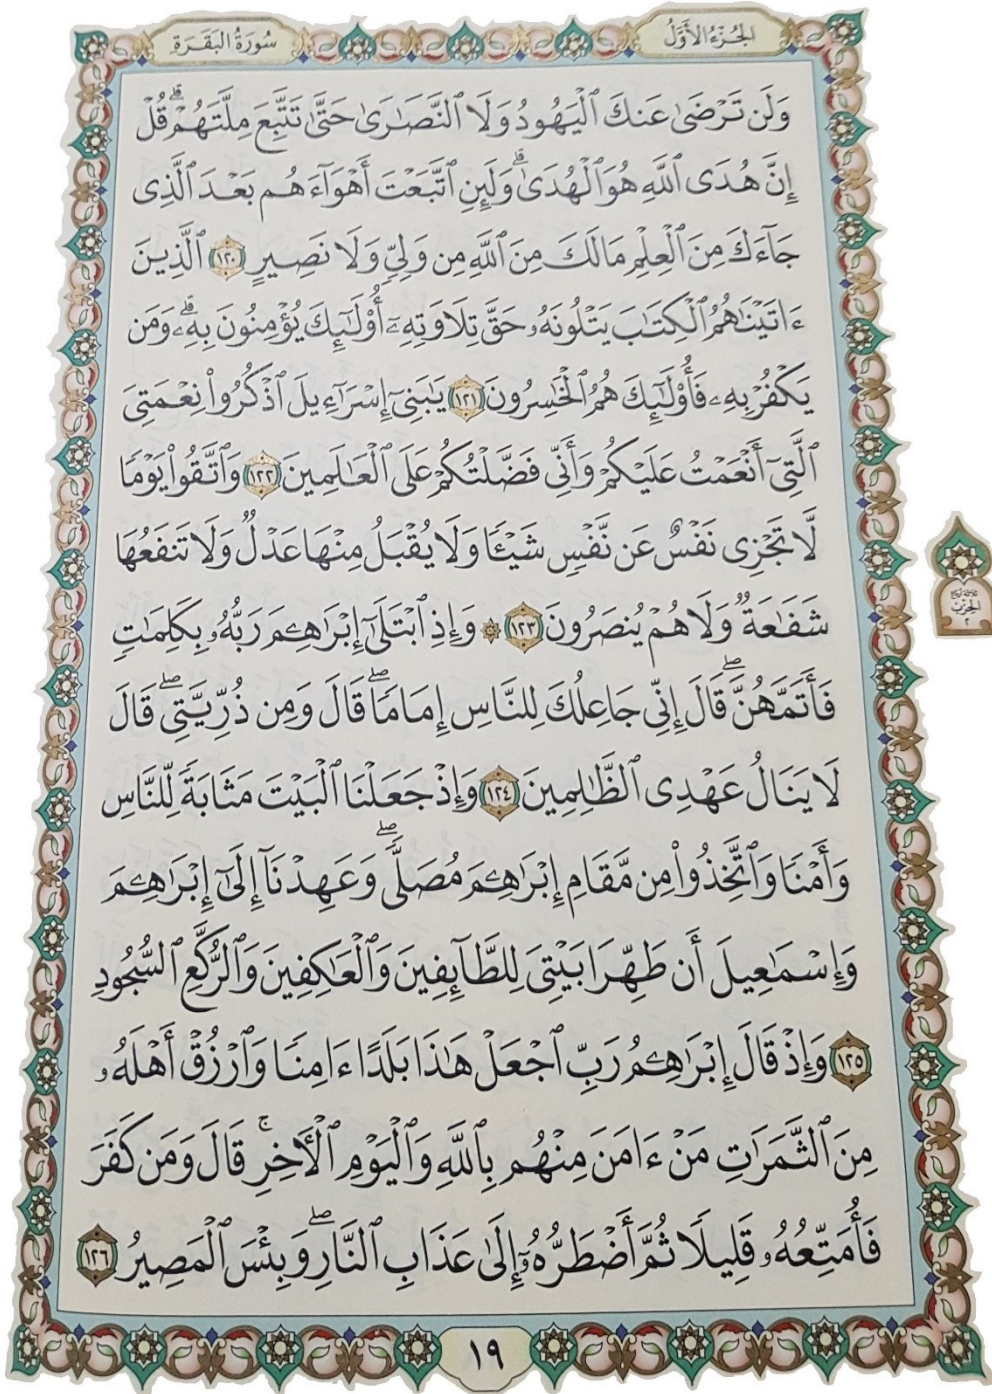 سُورَةُ البَقَرَةِ
الجُزْءُ الأَوَّلُ
وَلَن تَرْضَىٰ عَنكَ ٱلْيَهُودُ وَلَا ٱلنَّصَٰرَىٰ حَتَّىٰ تَتَّبِعَ مِلَّتَهُمْ ۗ قُلْ
إِنَّ هُدَى ٱللَّهِ هُوَ ٱلْهُدَىٰ ۗ وَلَئِنِ ٱتَّبَعْتَ أَهْوَآءَهُم بَعْدَ ٱلَّذِى
جَآءَكَ مِنَ ٱلْعِلْمِ مَا لَكَ مِنَ ٱللَّهِ مِن وَلِىٍّ وَلَا نَصِيرٍ ١٢٠ ٱلَّذِينَ
ءَاتَيْنَٰهُمُ ٱلْكِتَٰبَ يَتْلُونَهُۥ حَقَّ تِلَاوَتِهِۦٓ أُو۟لَٰٓئِكَ يُؤْمِنُونَ بِهِۦ ۗ وَمَن
يَكْفُرْ بِهِۦ فَأُو۟لَٰٓئِكَ هُمُ ٱلْخَٰسِرُونَ ١٢١ يَٰبَنِىٓ إِسْرَٰٓءِيلَ ٱذْكُرُوا۟ نِعْمَتِىَ
ٱلَّتِىٓ أَنْعَمْتُ عَلَيْكُمْ وَأَنِّى فَضَّلْتُكُمْ عَلَى ٱلْعَٰلَمِينَ ١٢٢ وَٱتَّقُوا۟ يَوْمًا
لَّا تَجْزِى نَفْسٌ عَن نَّفْسٍ شَيْـًٔا وَلَا يُقْبَلُ مِنْهَا عَدْلٌ وَلَا تَنفَعُهَا
شَفَٰعَةٌ وَلَا هُمْ يُنصَرُونَ ١٢٣ ۞ وَإِذِ ٱبْتَلَىٰٓ إِبْرَٰهِـۧمَ رَبُّهُۥ بِكَلِمَٰتٍ
فَأَتَمَّهُنَّ ۖ قَالَ إِنِّى جَاعِلُكَ لِلنَّاسِ إِمَامًا ۖ قَالَ وَمِن ذُرِّيَّتِى ۖ قَالَ
لَا يَنَالُ عَهْدِى ٱلظَّٰلِمِينَ ١٢٤ وَإِذْ جَعَلْنَا ٱلْبَيْتَ مَثَابَةً لِّلنَّاسِ
وَأَمْنًا وَٱتَّخِذُوا۟ مِن مَّقَامِ إِبْرَٰهِـۧمَ مُصَلًّى ۖ وَعَهِدْنَآ إِلَىٰٓ إِبْرَٰهِـۧمَ
وَإِسْمَٰعِيلَ أَن طَهِّرَا بَيْتِىَ لِلطَّآئِفِينَ وَٱلْعَٰكِفِينَ وَٱلرُّكَّعِ ٱلسُّجُودِ
١٢٥ وَإِذْ قَالَ إِبْرَٰهِـۧمُ رَبِّ ٱجْعَلْ هَٰذَا بَلَدًا ءَامِنًا وَٱرْزُقْ أَهْلَهُۥ
مِنَ ٱلثَّمَرَٰتِ مَنْ ءَامَنَ مِنْهُم بِٱللَّهِ وَٱلْيَوْمِ ٱلْـَٔاخِرِ ۚ قَالَ وَمَن كَفَرَ
فَأُمَتِّعُهُۥ قَلِيلًا ثُمَّ أَضْطَرُّهُۥٓ إِلَىٰ عَذَابِ ٱلنَّارِ ۖ وَبِئْسَ ٱلْمَصِيرُ ١٢٦
ثلاثة أرباع
الحزب
٢
١٩